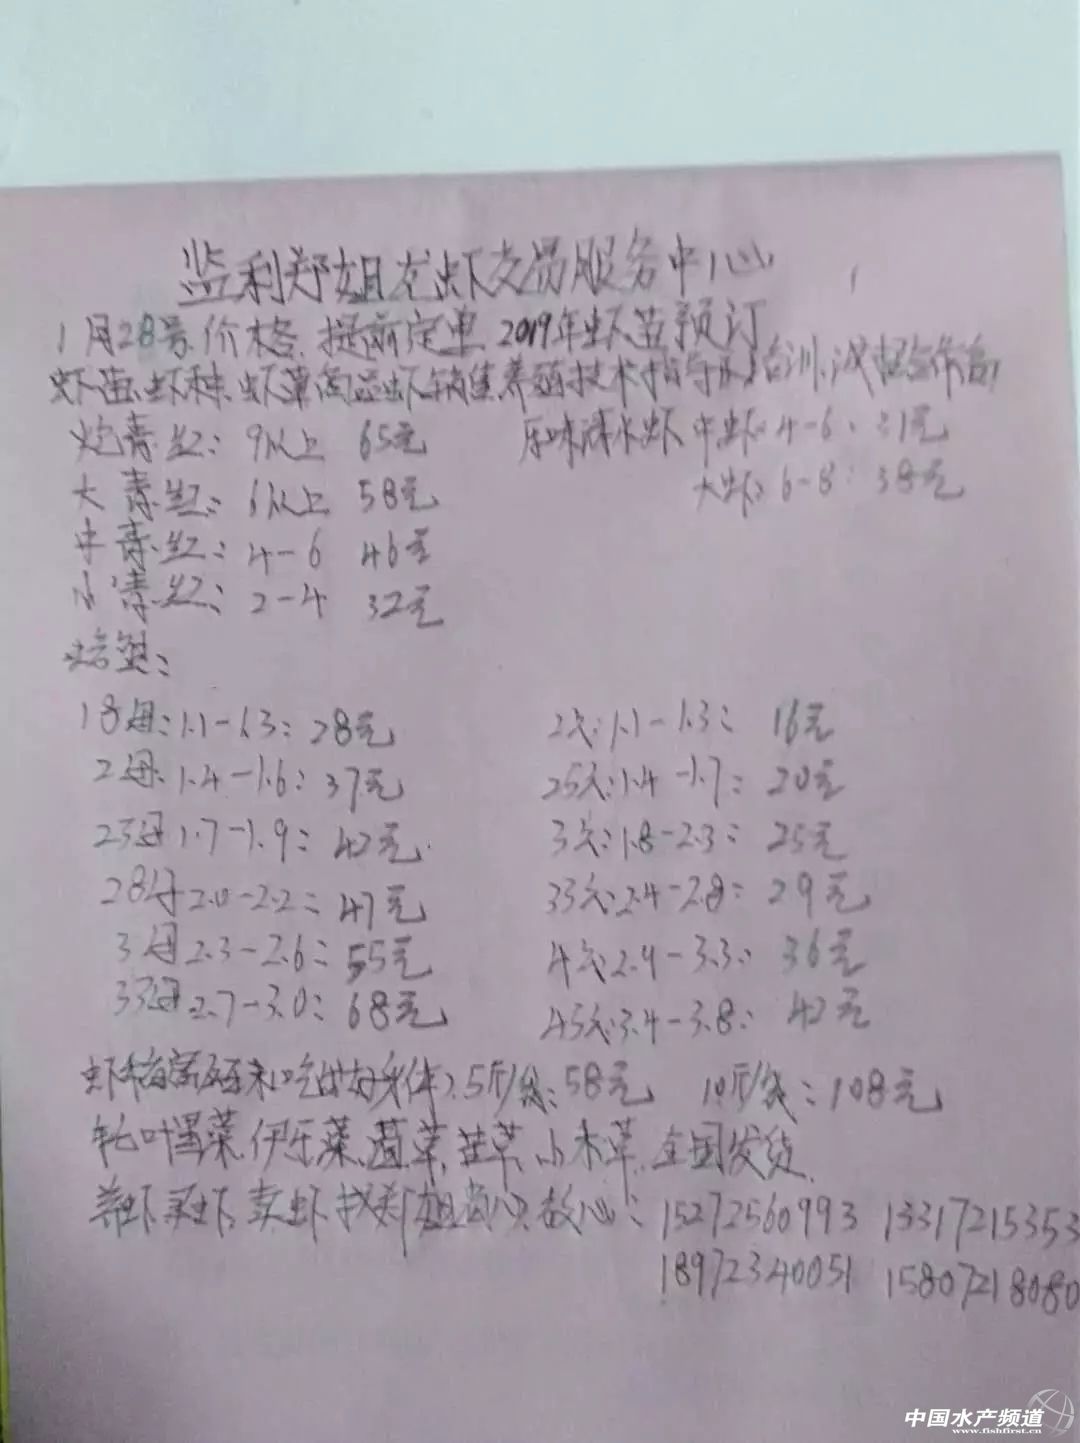 监利郑姐龙虾交易服务中心
1月28号.价格.提前定单 2019年虾苗预订
虾苗.虾种.虾草商品虾销售.养殖技术指导.培训.诚招合作商
炮青红: 9以上 65元 原味深水虾 中虾: 4-6: 31元
大青.红: 6以上 58元 大虾: 6-8: 38元
中青.红: 4-6 46元
小青.红: 2-4 32元
18母: 1.1-1.3: 28元 2大: 1.1-1.3: 16元
2母: 1.4-1.6: 37元 25大: 1.4-1.7: 20元
23母 1.7-1.9: 42元 3大: 1.8-2.3: 25元
28母 2.0-2.2: 47元 33大: 2.4-2.8: 29元
3母 2.3-2.6: 55元 4大: 2.9-3.3: 36元
33母 2.7-3.0: 68元 45大: 3.4-3.8: 42元
虾稻富硒米 5斤/袋: 58元 10斤/袋: 108元
伊乐藻 苦草 全国发货
养虾 买虾. 卖虾找郑姐省心.放心: 15272560993 13317215353
18972340051 15807218080
中国水产频道
www.fishfirst.cn